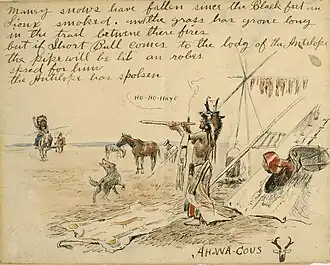 Maney snows have fallen since the Black feet an
Sioux smoked. an the grass has grone long
in the trail betwene there fires
but if Short Bull comes to the lodg of the Antilope
the pipe will be lit an robes
spred for him
the Antilope has spoken
HO-HO-HAYE
AH-WA-COUS